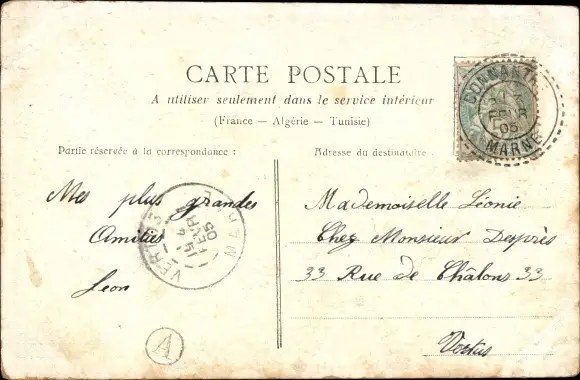 CARTE POSTALE
A utiliser seulement dans le service intérieur
(France — Algérie — Tunisie)
Partie réservée à la correspondance :
Adresse du destinataire .
CONNANT
05
MARNE
Mes plus grandes
Amitiés
Leon
VERTUS
FEVR
05
MARNE
Mademoiselle Léonie
Chez Monsieur Desprès
33 Rue de Châlons 33
Vertus
A